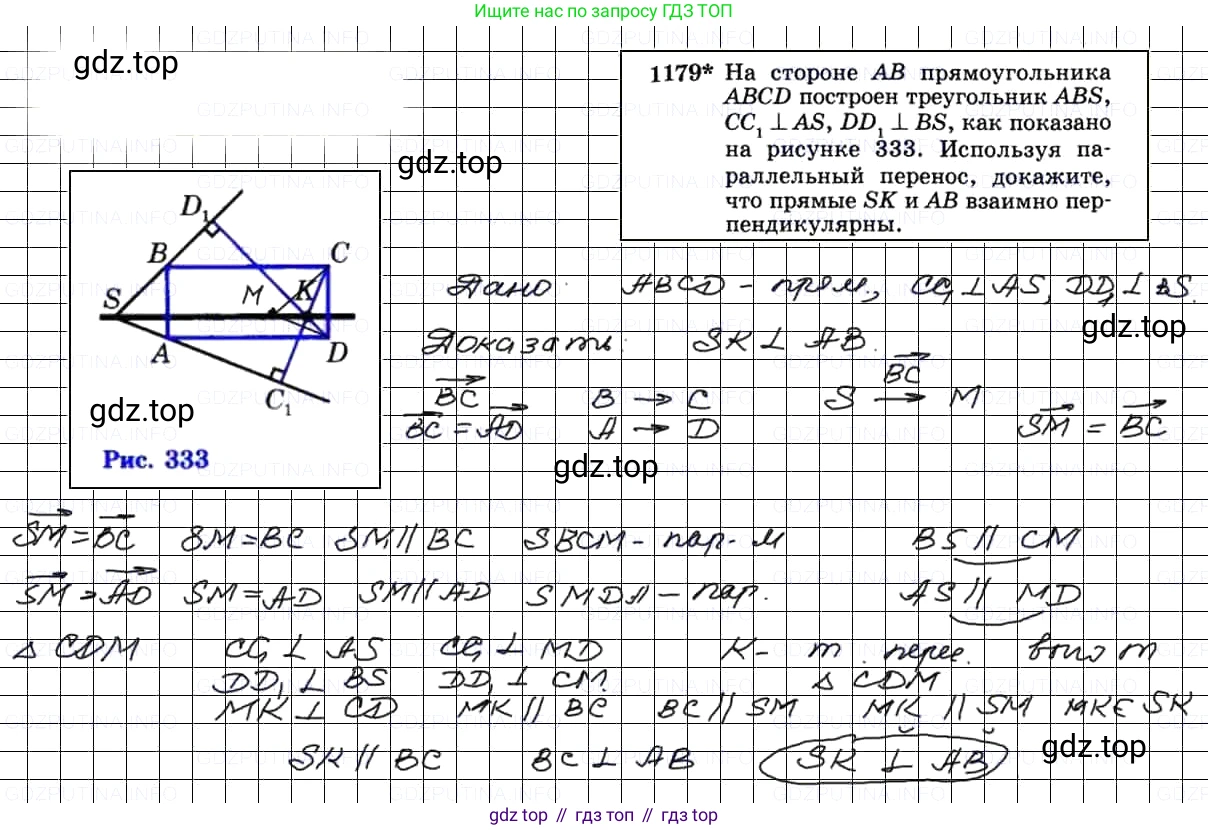 Ищите нас по запросу ГДЗ ТОП
gdz.top
1179* На стороне AB прямоугольника
ABCD построен треугольник ABS,
CC₁ ⊥ AS, DD₁ ⊥ BS, как показано
на рисунке 333. Используя па-
раллельный перенос, докажите,
что прямые SK и AB взаимно пер-
пендикулярны.
gdz.top
D₁
B
C
S
M
K
A
D
C₁
gdz.top
Рис. 333
Дано: ABCD - прям, CC₁ ⊥ AS, DD₁ ⊥ BS.
gdz.top
Доказать: SK ⊥ AB.
BC B → C S → M
BC
BC = AD A → D SM = BC
gdz.top
SM = BC SM = BC SM // BC SBCM - пар-м BS // CM
SM = AD SM = AD SM // AD SMDA - пар. AS // MD
Δ CDM CC₁ ⊥ AS CC₁ ⊥ MD K - т. перес. высот
DD₁ ⊥ BS DD₁ ⊥ CM. Δ CDM
MK ⊥ CD MK // BC BC // SM MK // SM MK ∈ SK
SK // BC BC ⊥ AB SK ⊥ AB
gdz.top
gdz.top // гдз топ // gdz top
GDZPUTINA.INFO